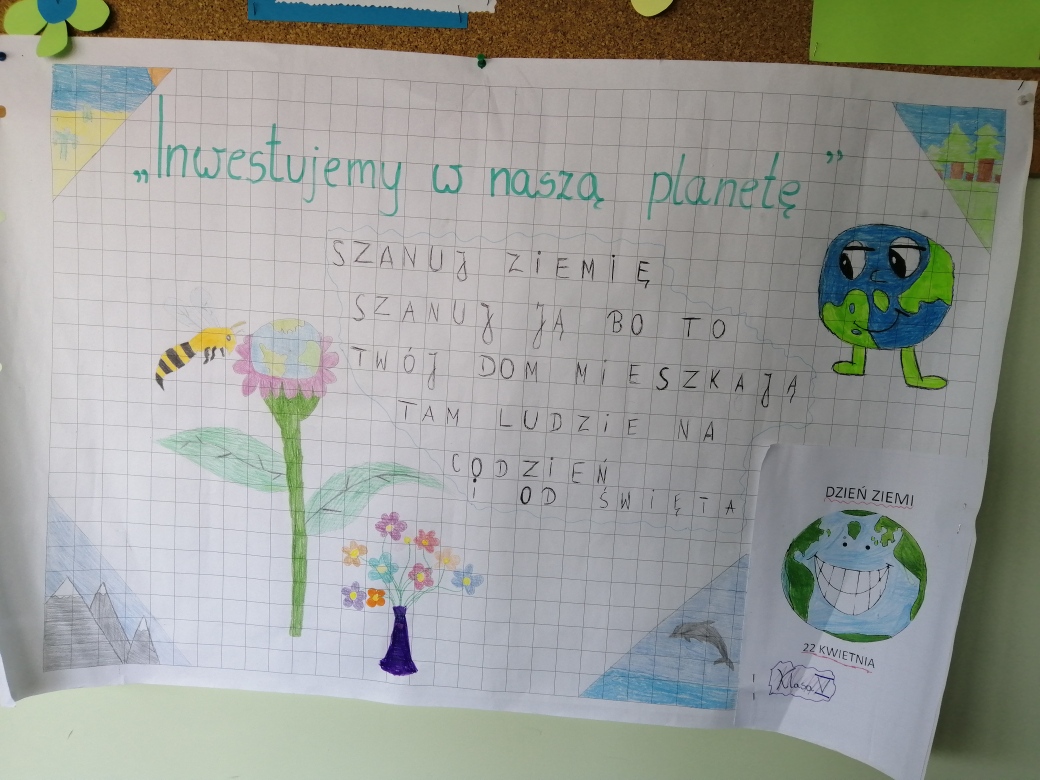 „Inwestujemy w naszą planetę”
SZANUJ ZIEMIĘ
SZANUJ JĄ BO TO
TWÓJ DOM MIESZKAJĄ
TAM LUDZIE NA
CODZIEŃ
i OD ŚWIĘTA
DZIEŃ ZIEMI
22 KWIETNIA
Klasa V